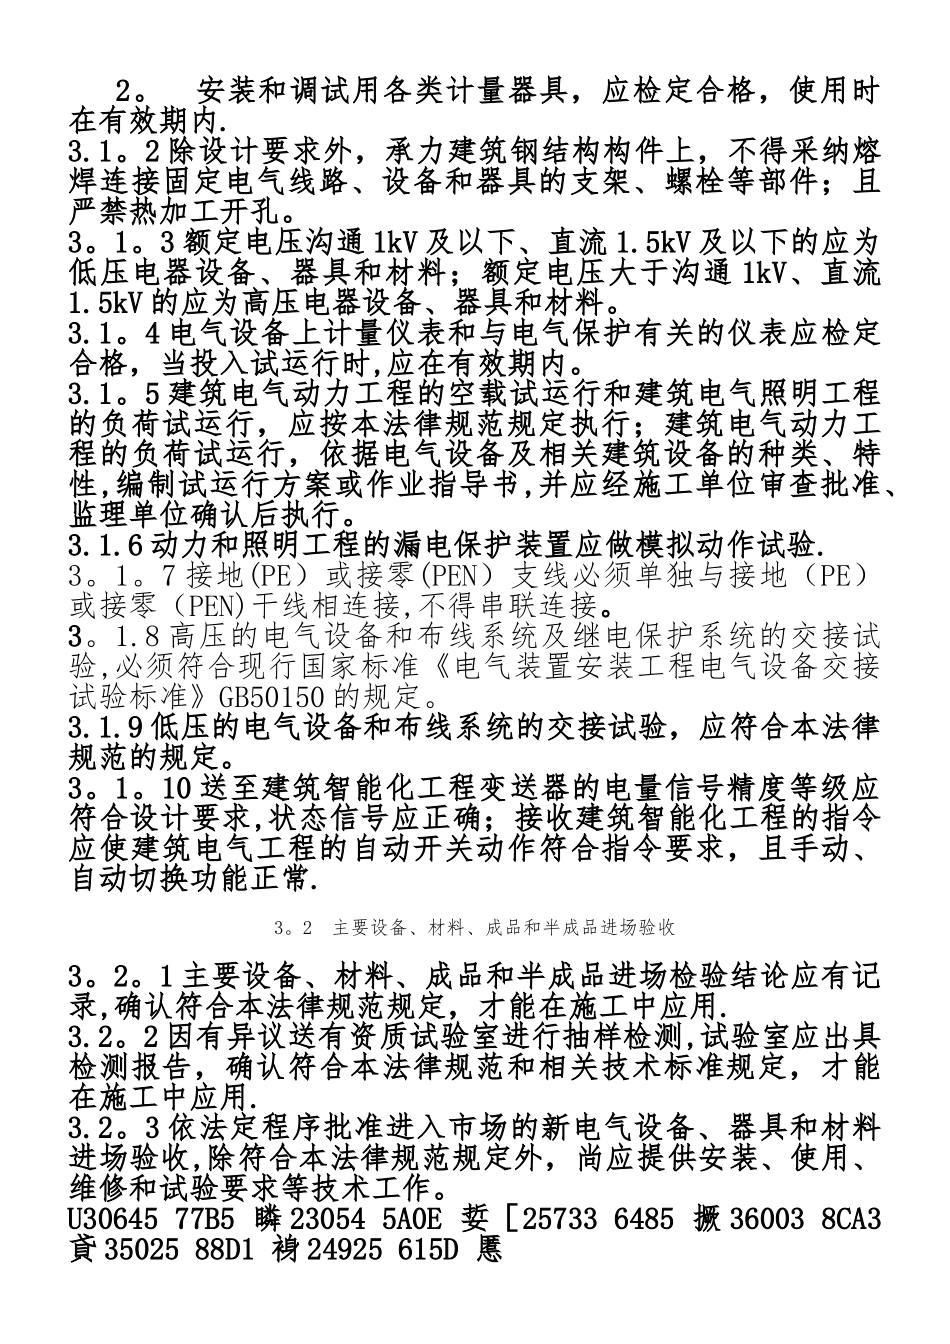 2。 安装和调试用各类计量器具，应检定合格，使用时
在有效期内.
3.1。2 除设计要求外，承力建筑钢结构构件上，不得采纳熔
焊连接固定电气线路、设备和器具的支架、螺栓等部件；且
严禁热加工开孔。
3。1。3 额定电压沟通 1kV 及以下、直流 1.5kV 及以下的应为
低压电器设备、器具和材料；额定电压大于沟通 1kV、直流
1.5kV 的应为高压电器设备、器具和材料。
3.1。4 电气设备上计量仪表和与电气保护有关的仪表应检定
合格，当投入试运行时,应在有效期内。
3.1。5 建筑电气动力工程的空载试运行和建筑电气照明工程
的负荷试运行，应按本法律规范规定执行；建筑电气动力工
程的负荷试运行，依据电气设备及相关建筑设备的种类、特
性,编制试运行方案或作业指导书,并应经施工单位审查批准、
监理单位确认后执行。
3.1.6 动力和照明工程的漏电保护装置应做模拟动作试验.
3。1。7 接地(PE）或接零(PEN）支线必须单独与接地（PE）
或接零（PEN)干线相连接,不得串联连接。
3。1.8 高压的电气设备和布线系统及继电保护系统的交接试
验,必须符合现行国家标准《电气装置安装工程电气设备交接
试验标准》GB50150 的规定。
3.1.9 低压的电气设备和布线系统的交接试验，应符合本法律
规范的规定。
3。1。10 送至建筑智能化工程变送器的电量信号精度等级应
符合设计要求,状态信号应正确；接收建筑智能化工程的指令
应使建筑电气工程的自动开关动作符合指令要求，且手动、
自动切换功能正常.
3。2 主要设备、材料、成品和半成品进场验收
3。2。1 主要设备、材料、成品和半成品进场检验结论应有记
录,确认符合本法律规范规定，才能在施工中应用.
3.2。2 因有异议送有资质试验室进行抽样检测,试验室应出具
检测报告，确认符合本法律规范和相关技术标准规定，才能
在施工中应用.
3.2。3 依法定程序批准进入市场的新电气设备、器具和材料
进场验收,除符合本法律规范规定外，尚应提供安装、使用、
维修和试验要求等技术工作。
U30645 77B5 瞵 23054 5A0E 娎 [25733 6485 撅 36003 8CA3
貣 35025 88D1 裑 24925 615D 慝